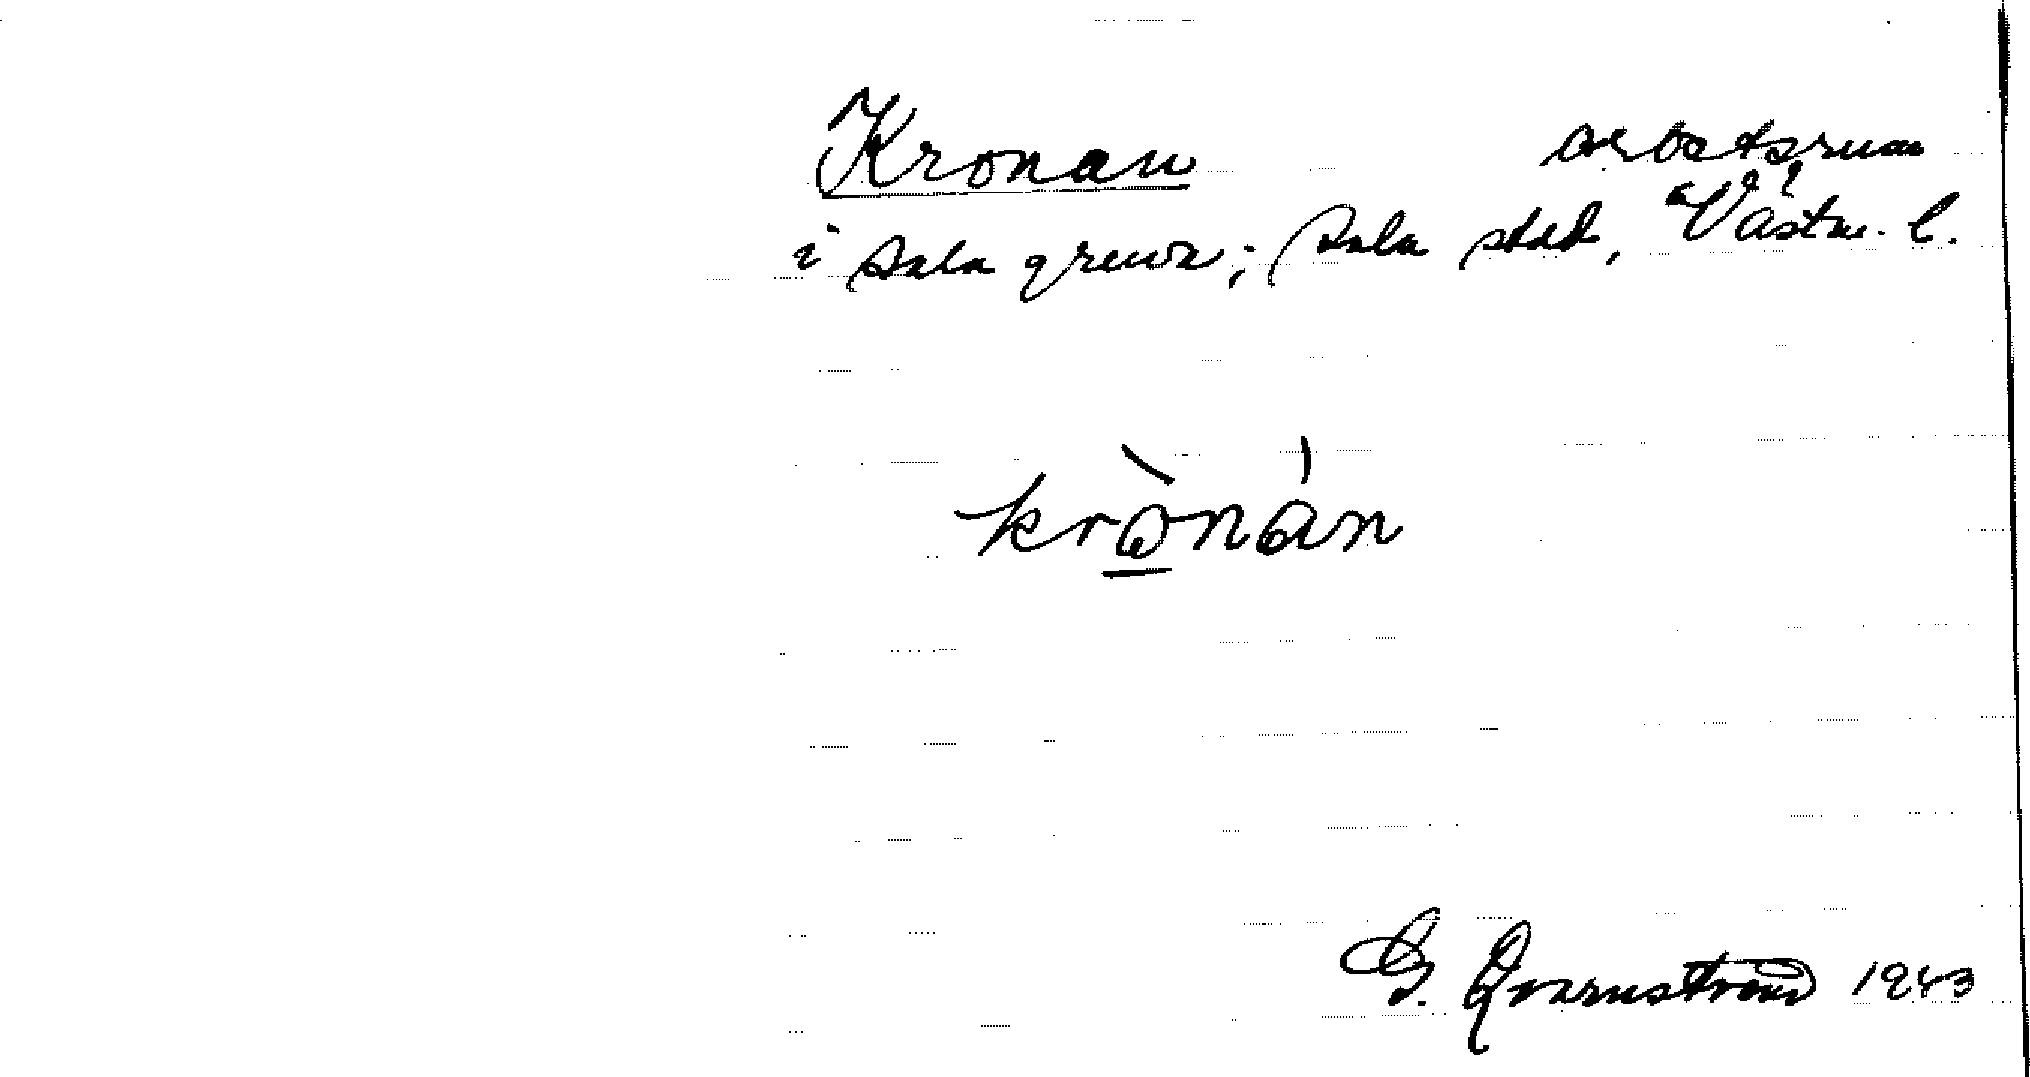 Kronan arbetsrum
i Sala gruva; Sala stad, Västm. l.
krònán
G. Qvarnström 1943